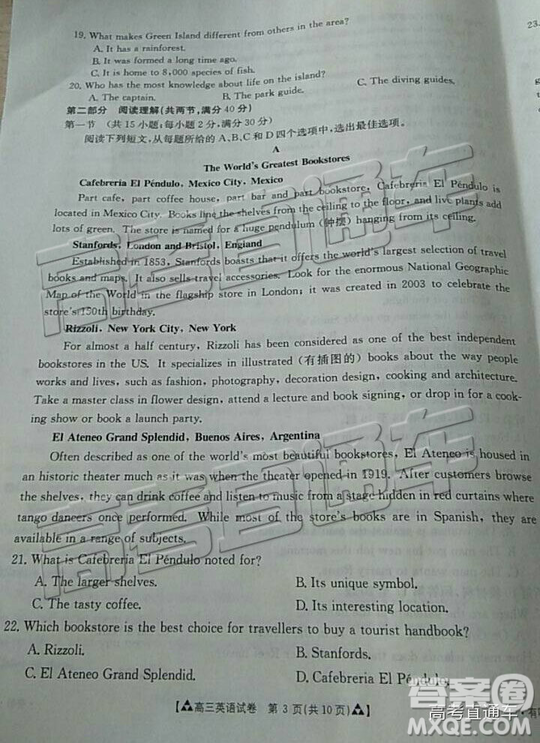 19. What makes Green Island different from others in the area?
A. It has a rainforest.
B. It was formed a long time ago.
C. It is home to 8,000 species of fish.
20. Who has the most knowledge about life on the island?
A. The captain. B. The park guide. C. The diving guides.
23.
第二部分 阅读理解(共两节,满分 40 分)
第一节 (共 15 小题;每小题 2 分,满分 30 分)
阅读下列短文,从每题所给的 A、B、C 和 D 四个选项中,选出最佳选项。
A
The World's Greatest Bookstores
Cafebreria El Péndulo, Mexico City, Mexico
Part cafe, part coffee house, part bar and part bookstore, Cafebreria El Péndulo is
located in Mexico City. Books line the shelves from the ceiling to the floor, and live plants add
lots of green. The store is named for a huge pendulum (钟摆) hanging from its ceiling.
Stanfords, London and Bristol, England
Established in 1853, Stanfords boasts that it offers the world's largest selection of travel
books and maps. It also sells travel accessories. Look for the enormous National Geographic
Map of the World in the flagship store in London; it was created in 2003 to celebrate the
store's 150th birthday.
Rizzoli, New York City, New York
For almost a half century, Rizzoli has been considered as one of the best independent
bookstores in the US. It specializes in illustrated (有插图的) books about the way people
works and lives, such as fashion, photography, decoration design, cooking and architecture.
Take a master class in flower design, attend a lecture and book signing, or drop in for a cook-
ing show or book a launch party.
El Ateneo Grand Splendid, Buenos Aires, Argentina
Often described as one of the world's most beautiful bookstores, El Ateneo is housed in
an historic theater much as it was when the theater opened in 1919. After customers browse
the shelves, they can drink coffee and listen to music from a stage hidden in red curtains where
tango dancers once performed. While most of the store's books are in Spanish, they are
available in a range of subjects.
21. What is Cafebreria El Péndulo noted for?
A. The larger shelves. B. Its unique symbol.
C. The tasty coffee. D. Its interesting location.
22. Which bookstore is the best choice for travellers to buy a tourist handbook?
A. Rizzoli. B. Stanfords.
C. El Ateneo Grand Splendid. D. Cafebreria El Péndulo.
【高三英语试卷 第 3 页(共 10 页)】
高考直通车
高考直通车
高考直通车
答案圈
MXQE.COM